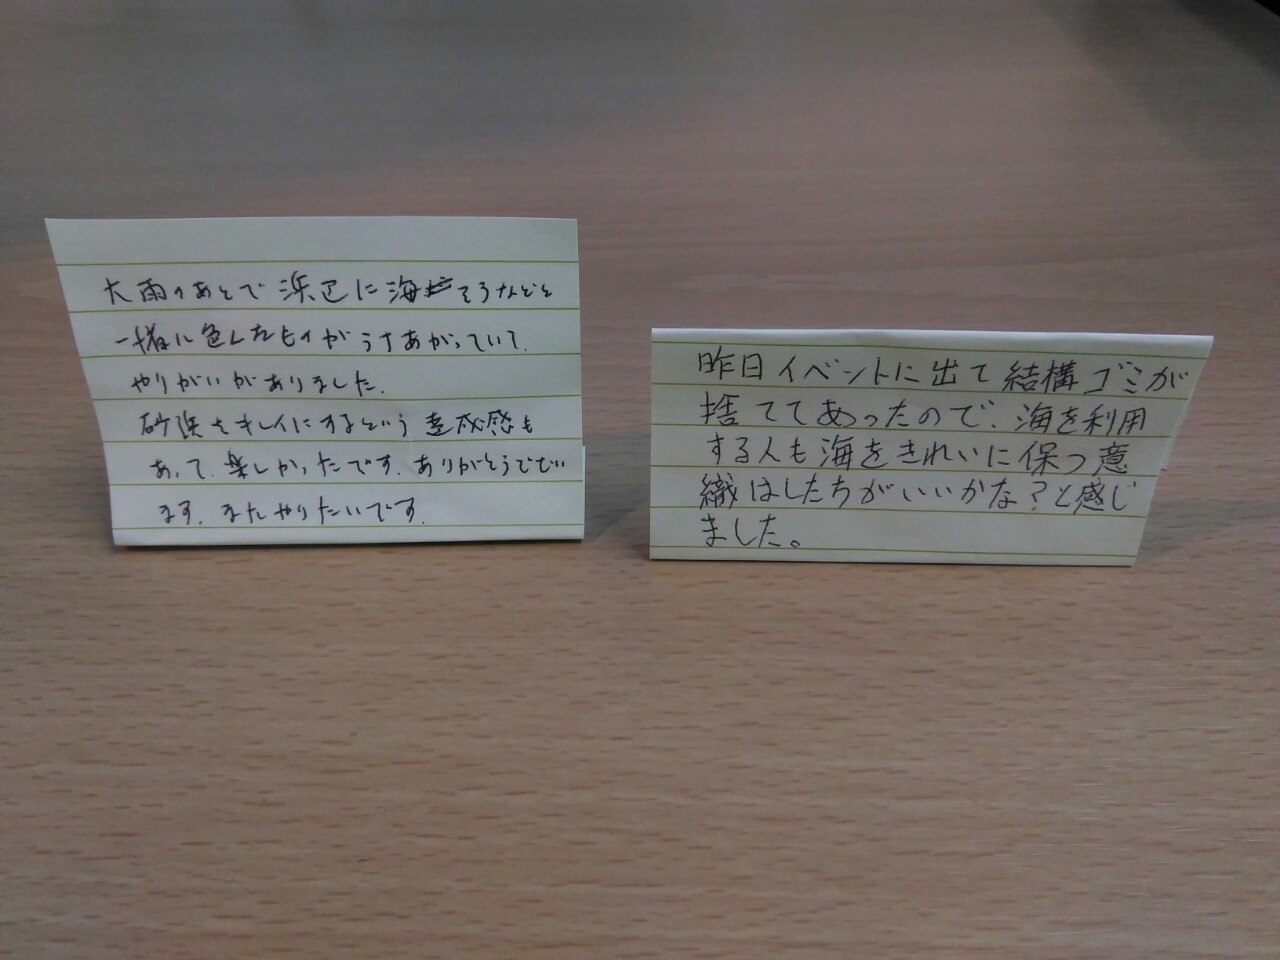 大雨のあとで浜辺に海そうなどと
一緒に色んなものがうちあがっていて、
やりがいがありました。
砂浜をキレイにするという達成感も
あって、楽しかったです。ありがとうござい
ます。またやりたいです。
昨日イベントに出て結構ゴミが
捨ててあったので、海を利用
する人も海をきれいに保つ意
織はしたちがいいかな？と感じ
ました。